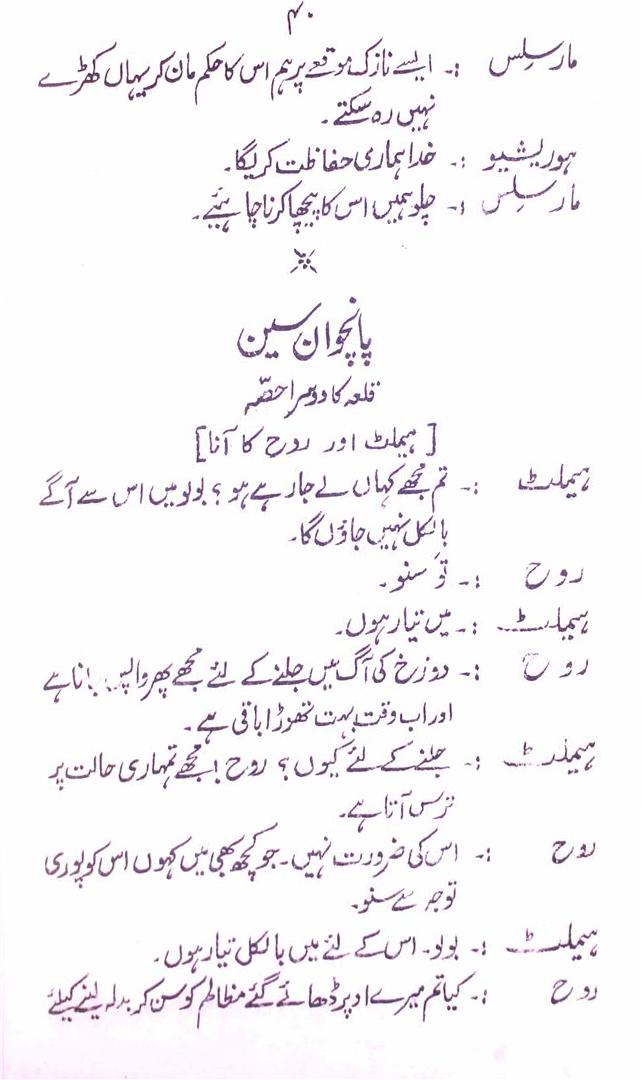 ۴۰
مارسلس :- ایسے نازک موقعے پر ہم اس کا حکم مان کر یہاں کھڑے
نہیں رہ سکتے۔
ہوریشیو :- خدا ہماری حفاظت کریگا۔
مارسلس :- چلو ہمیں اس کا پیچھا کرنا چاہئیے۔
پانچواں سین
قلعہ کا دوسرا حصّہ
[ہیملٹ اور روح کا آنا]
ہیملٹ :- تم مجھے کہاں لے جارہے ہو؟ بولو میں اس سے آگے
بالکل نہیں جاؤں گا۔
روح :- تو سنو۔
ہیملٹ :- میں تیار ہوں۔
روح :- دوزخ کی آگ میں جلنے کے لئے مجھے پھر واپس جانا ہے
اور اب وقت بہت تھوڑا باقی ہے۔
ہیملٹ :- جلنے کے لئے کیوں؟ روح! مجھے تمہاری حالت پر
ترس آتا ہے۔
روح :- اس کی ضرورت نہیں۔ جو کچھ بھی میں کہوں اس کو پوری
توجہ سے سنو۔
ہیملٹ :- بولو۔ اس کے لئے میں بالکل تیار ہوں۔
روح :- کیا تم میرے اوپر ڈھائے گئے مظالم کو سن کر بدلہ لینے کیلئے